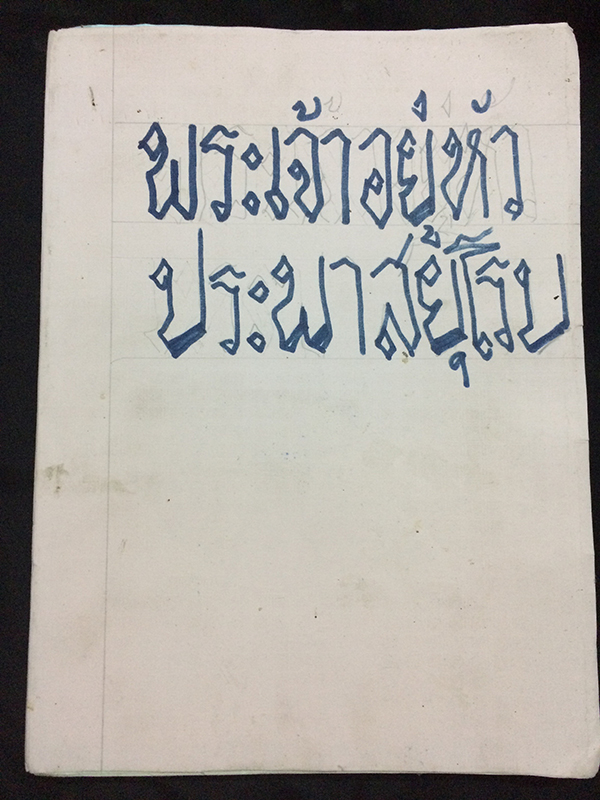 พระเจ้าอยู่หัว
ประพาสยุโรป